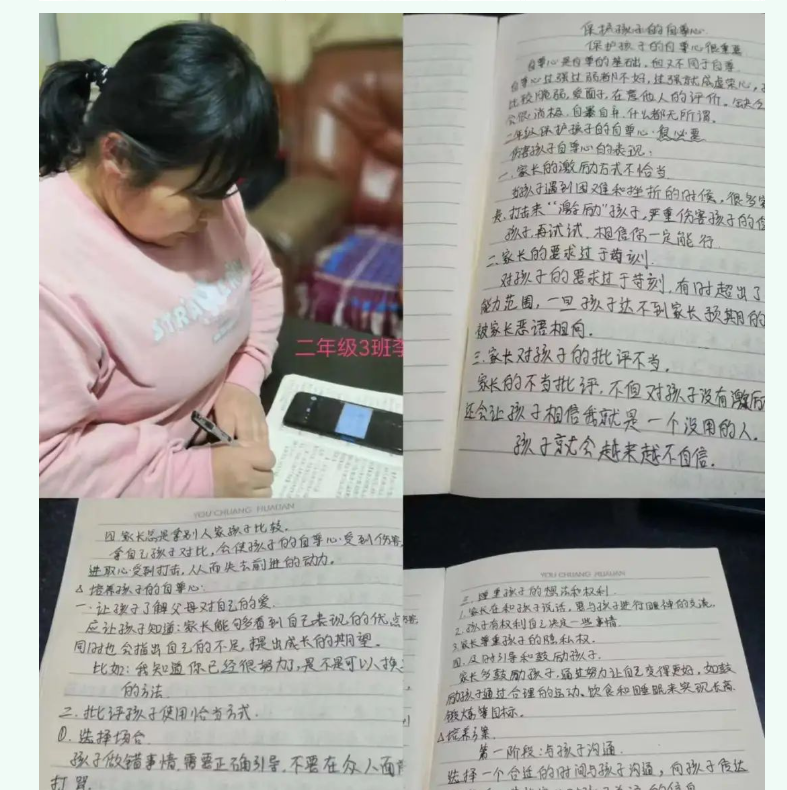 STRA
二年级3班李
保护孩子的自尊心
保护孩子的自尊心很重要
自尊心是自尊的基础,但又不同于自尊
自尊心过强过弱都不好,过强就成虚荣心,
比较脆弱,爱面子,在意他人的评价。
会很消极,自暴自弃,什么都无所谓。
二年级保护孩子的自尊心
伤害孩子自尊心的表现:
一、家长的激励方式不恰当
当孩子遇到困难和挫折的时候,很多家
长,打击来“激励”孩子,严重伤害孩子的自
孩子再试试,相信你一定能行
二、家长的要求过于苛刻
对孩子的要求过于苛刻,有时超出了
能力范围,一旦孩子达不到家长预期的
被家长恶语相向。
三、家长对孩子的批评不当。
家长的不当批评,不但对孩子没有激励
还会让孩子相信我就是一个没用的人。
孩子就会越来越不自信。
YOU CHUANG HUATIAN
四、家长总是拿别人家孩子比较。
拿自己孩子对比,会使孩子的自尊心受到伤害
进取心受到打击,从而失去前进的动力。
△培养孩子的自尊心:
一、让孩子了解父母对自己的爱
应让孩子知道:家长能够看到自己表现的优点
同时也会指出自己的不足,提出成长的期望。
比如:我知道你已经很努力了,是不是可以换
的方法
二、批评孩子使用恰当方式.
①.选择场合
孩子做错事情,需要正确引导,不要在众人面前
打骂
YOU CHUANG HUATIAN
三、尊重孩子的想法和权利
1.家长在和孩子说话,要与孩子进行眼神的交流。
2.孩子有权利自己决定一些事情.
3.家长尊重孩子的隐私权.
四、及时引导和鼓励孩子.
家长多鼓励孩子,通过努力让自己变得更好,如鼓
励孩子通过合理的运动、饮食和睡眠来实现长高
锻炼等目标。
△培养方案.
第一阶段:与孩子沟通.
选择一个合适的时间与孩子沟通,向孩子传达